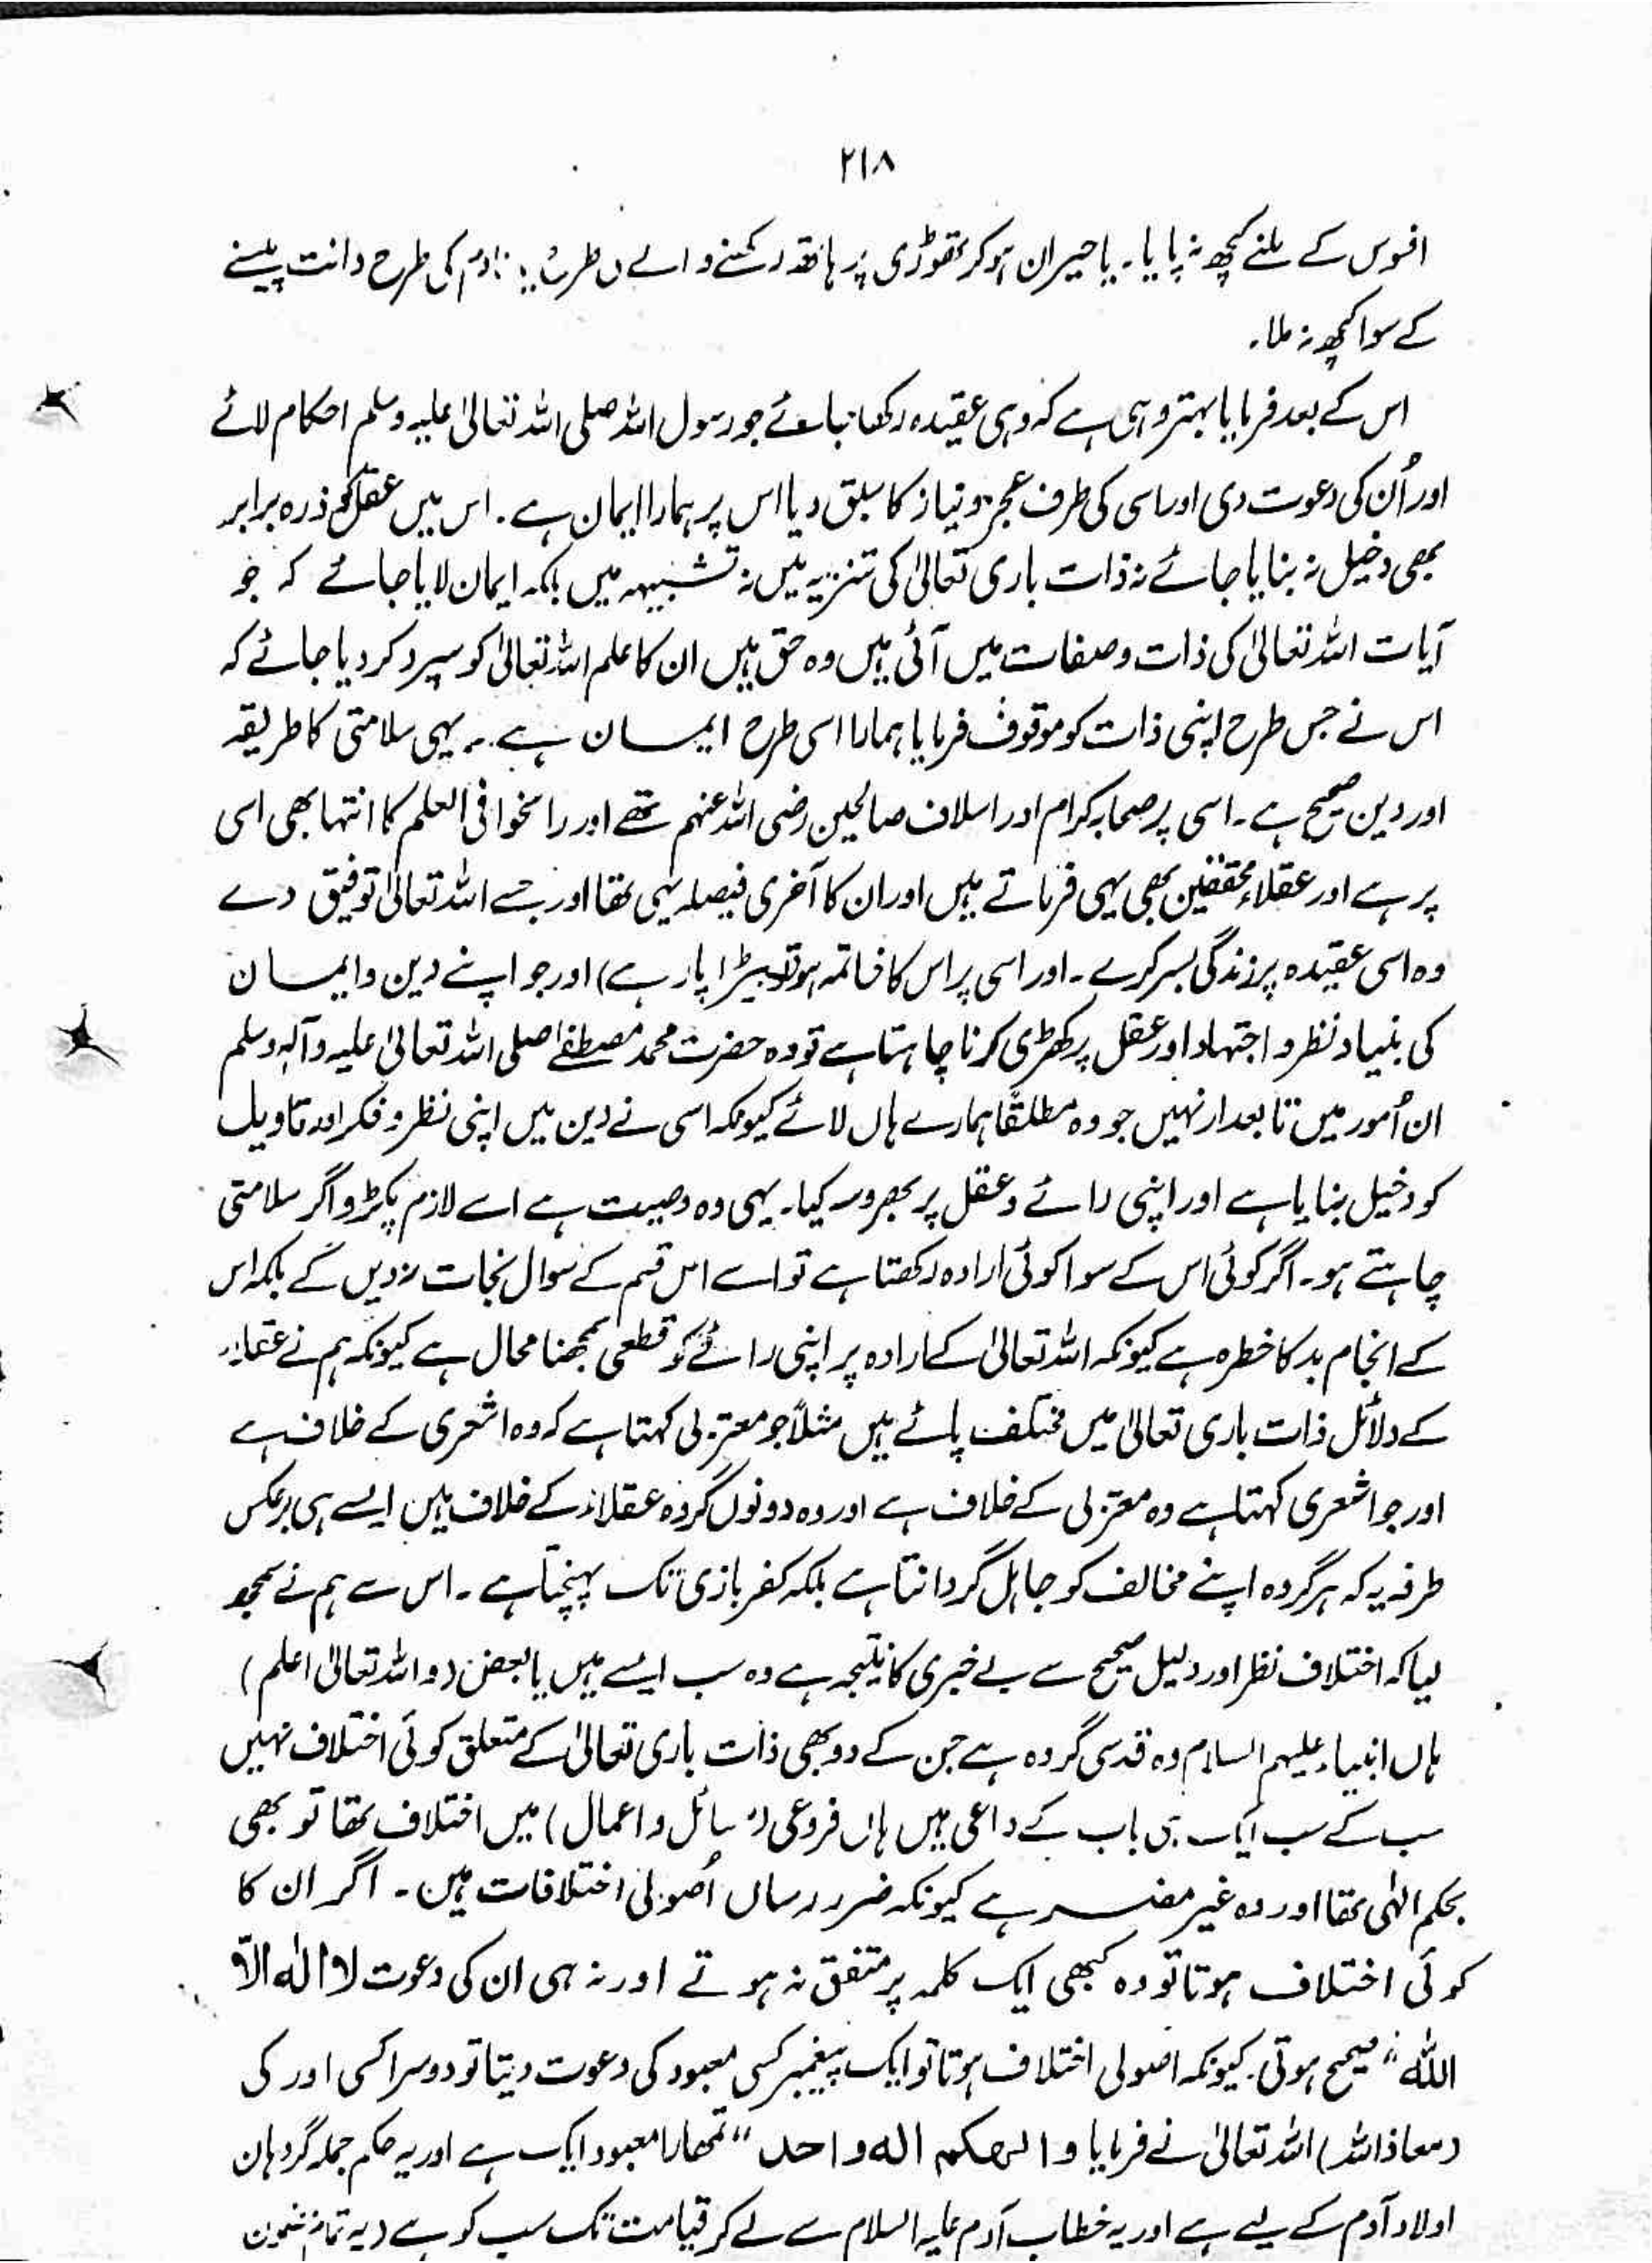 ۲۱۸
افسوس کے ملنے کچھ نہ پایا۔ یا حیران ہو کر تھوڑی پر ہاتھ رکھنے والے کی طرح یا نادم کی طرح دانت پیسنے
کے سوا کچھ نہ ملا۔
اس کے بعد فرمایا بہتر وہی ہے کہ وہی عقیدہ رکھا جائے جو رسول اللہ صلی اللہ تعالیٰ علیہ وسلم احکام لائے
اور اُن کی دعوت دی اور اسی کی طرف عجز و نیاز کا سبق دیا اس پر ہمارا ایمان ہے۔ اس میں عقل کو ذرہ برابر
بھی دخیل نہ بنایا جائے نہ ذات باری تعالیٰ کی تنزیہ میں نہ تشبیہہ میں بلکہ ایمان لایا جائے کہ جو
آیات اللہ تعالیٰ کی ذات و صفات میں آئی ہیں وہ حق ہیں ان کا علم اللہ تعالیٰ کو سپرد کر دیا جائے کہ
اس نے جس طرح اپنی ذات کو موقوف فرمایا ہمارا اسی طرح ایمان ہے۔ یہی سلامتی کا طریقہ
اور دین صحیح ہے۔ اسی پر صحابہ کرام اور اسلاف صالحین رضی اللہ عنہم تھے اور راسخوا فی العلم کا انتہا بھی اسی
پر ہے اور عقلاء محققین بھی یہی فرماتے ہیں اور ان کا آخری فیصلہ یہی تھا اور جسے اللہ تعالیٰ توفیق دے
وہ اسی عقیدہ پر زندگی بسر کرے۔ اور اسی پر اس کا خاتمہ ہو تو بیڑا پار ہے) اور جو اپنے دین و ایمان
کی بنیاد نظر و اجتہاد اور عقل پر کھڑی کرنا چاہتا ہے تو وہ حضرت محمد مصطفےٰ صلی اللہ تعالیٰ علیہ و آلہ وسلم
ان اُمور میں تابعدار نہیں جو وہ مطلقًا ہمارے ہاں لائے کیونکہ اسی نے دین میں اپنی نظر و فکر اور تاویل
کو دخیل بنایا ہے اور اپنی رائے و عقل پر بھروسہ کیا۔ یہی وہ وصیت ہے اسے لازم پکڑو اگر سلامتی
چاہتے ہو۔ اگر کوئی اس کے سوا کوئی ارادہ رکھتا ہے تو اسے اس قسم کے سوال نجات نہ دیں گے بلکہ اس
کے انجام بد کا خطرہ ہے کیونکہ اللہ تعالیٰ کے ارادہ پر اپنی رائے کو قطعی سمجھنا محال ہے کیونکہ ہم نے عقلاء
کے دلائل ذات باری تعالیٰ میں مختلف پائے ہیں مثلاً جو معتزلی کہتا ہے کہ وہ اشعری کے خلاف ہے
اور جو اشعری کہتا ہے وہ معتزلی کے خلاف ہے اور وہ دونوں گروہ عقلاء کے خلاف ہیں ایسے ہی برعکس
طرفہ یہ کہ ہر گروہ اپنے مخالف کو جاہل گردانتا ہے بلکہ کفر بازی تک پہنچتا ہے۔ اس سے ہم نے سمجھ
لیا کہ اختلاف نظر اور دلیل صحیح سے بے خبری کا نتیجہ ہے وہ سب ایسے ہیں یا بعض (واللہ تعالیٰ اعلم)
ہاں انبیاء علیہم السلام وہ قدسی گروہ ہے جن کے دو بھی ذات باری تعالیٰ کے متعلق کوئی اختلاف نہیں
سب کے سب ایک ہی باب کے داعی ہیں ہاں فروعی (مسائل و اعمال) میں اختلاف تھا تو بھی
بحکم الٰہی تھا اور وہ غیر مضر ہے کیونکہ ضرر رساں اُصولی اختلافات ہیں۔ اگر ان کا
کوئی اختلاف ہوتا تو وہ کبھی ایک کلمہ پر متفق نہ ہوتے اور نہ ہی ان کی دعوت لا الٰہ الاّ
اللہ" صحیح ہوتی۔ کیونکہ اصولی اختلاف ہوتا تو ایک پیغمبر کسی معبود کی دعوت دیتا تو دوسرا کسی اور کی
(معاذ اللہ) اللہ تعالیٰ نے فرمایا و الٰھکم الہ واحد "تمھارا معبود ایک ہے اور یہ حکم جملہ گردہان
اولاد آدم کے لیے ہے اور یہ خطاب آدم علیہ السلام سے لے کر قیامت تک سب کو ہے (یہ تمام مضمون